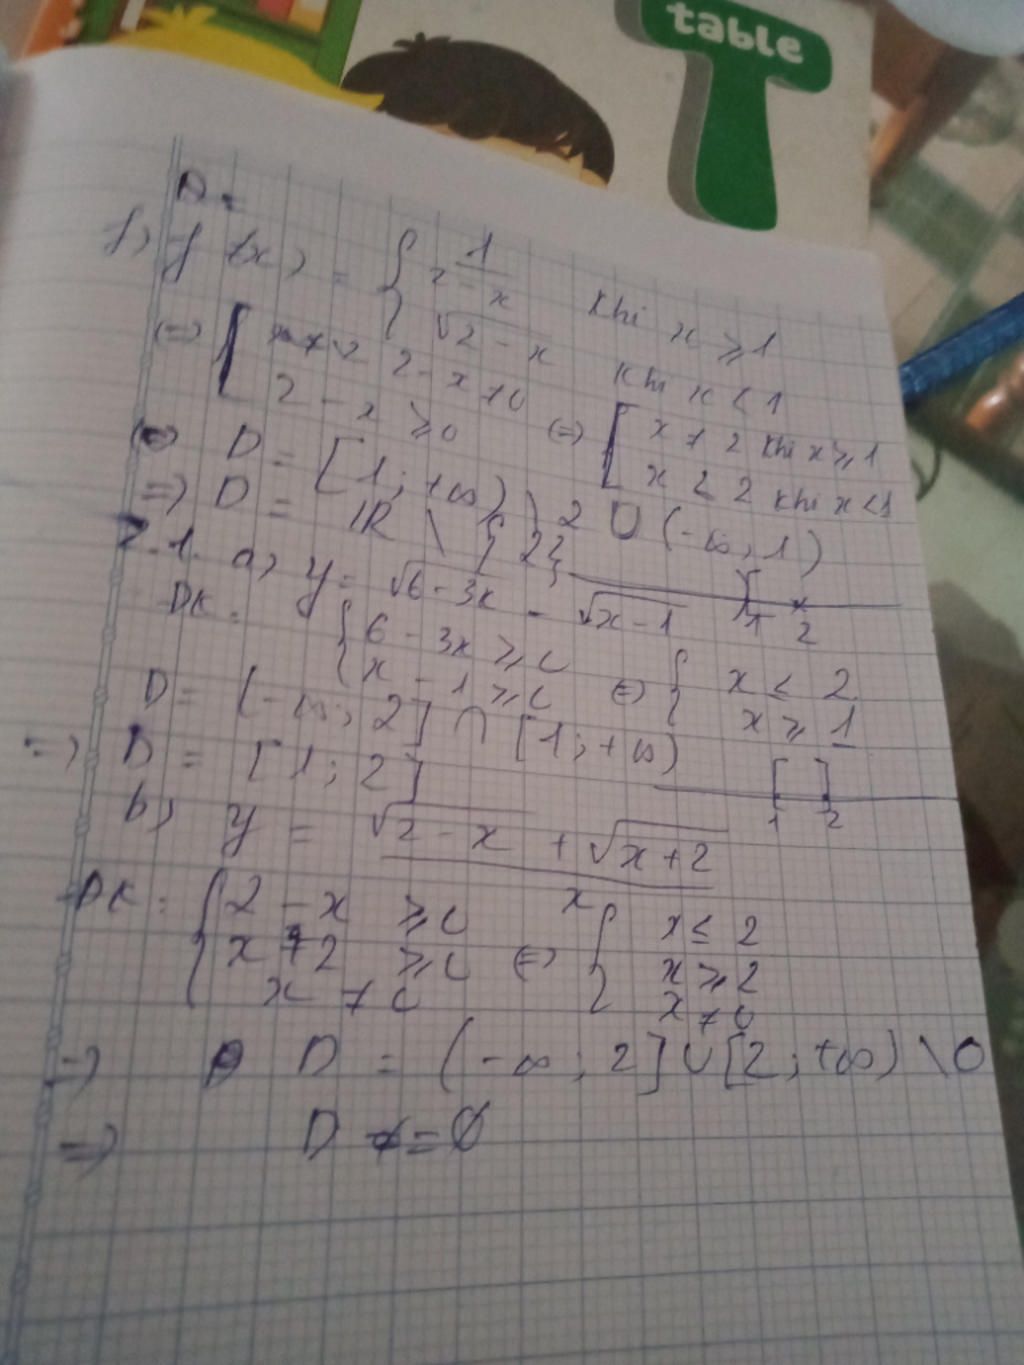 table
T
D =
f) y f(x) = { 1/(2 - x) khi x ≥ 1
√(2 - x) khi x < 1
(=) [ 2 - x ≠ 0 (=) [ x ≠ 2 khi x ≥ 1
2 - x ≥ 0 x < 2 khi x < 1
D = [1; +∞) \ 2 ∪ (-∞; 1)
=) D = ℝ \ {2}
1 2
2.1. a) y = √(6 - 3x) - √(x - 1)
DK: { 6 - 3x ≥ 0 (=) { x ≤ 2
x - 1 ≥ 0 x ≥ 1
D = (-∞; 2] ∩ [1; +∞)
=) D = [1; 2]
[ ]
1 2
b) y = (√(2 - x) + √(x + 2))/x
DK: { 2 - x ≥ 0 (=) { x ≤ 2
x + 2 ≥ 0 x ≥ 2
x ≠ 0 x ≠ 0
=) D = (-∞; 2] ∪ [2; +∞) \ 0
=) D = ∅